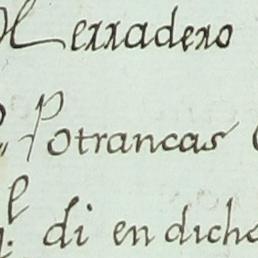 Herradero
Potrancas
di en dicho